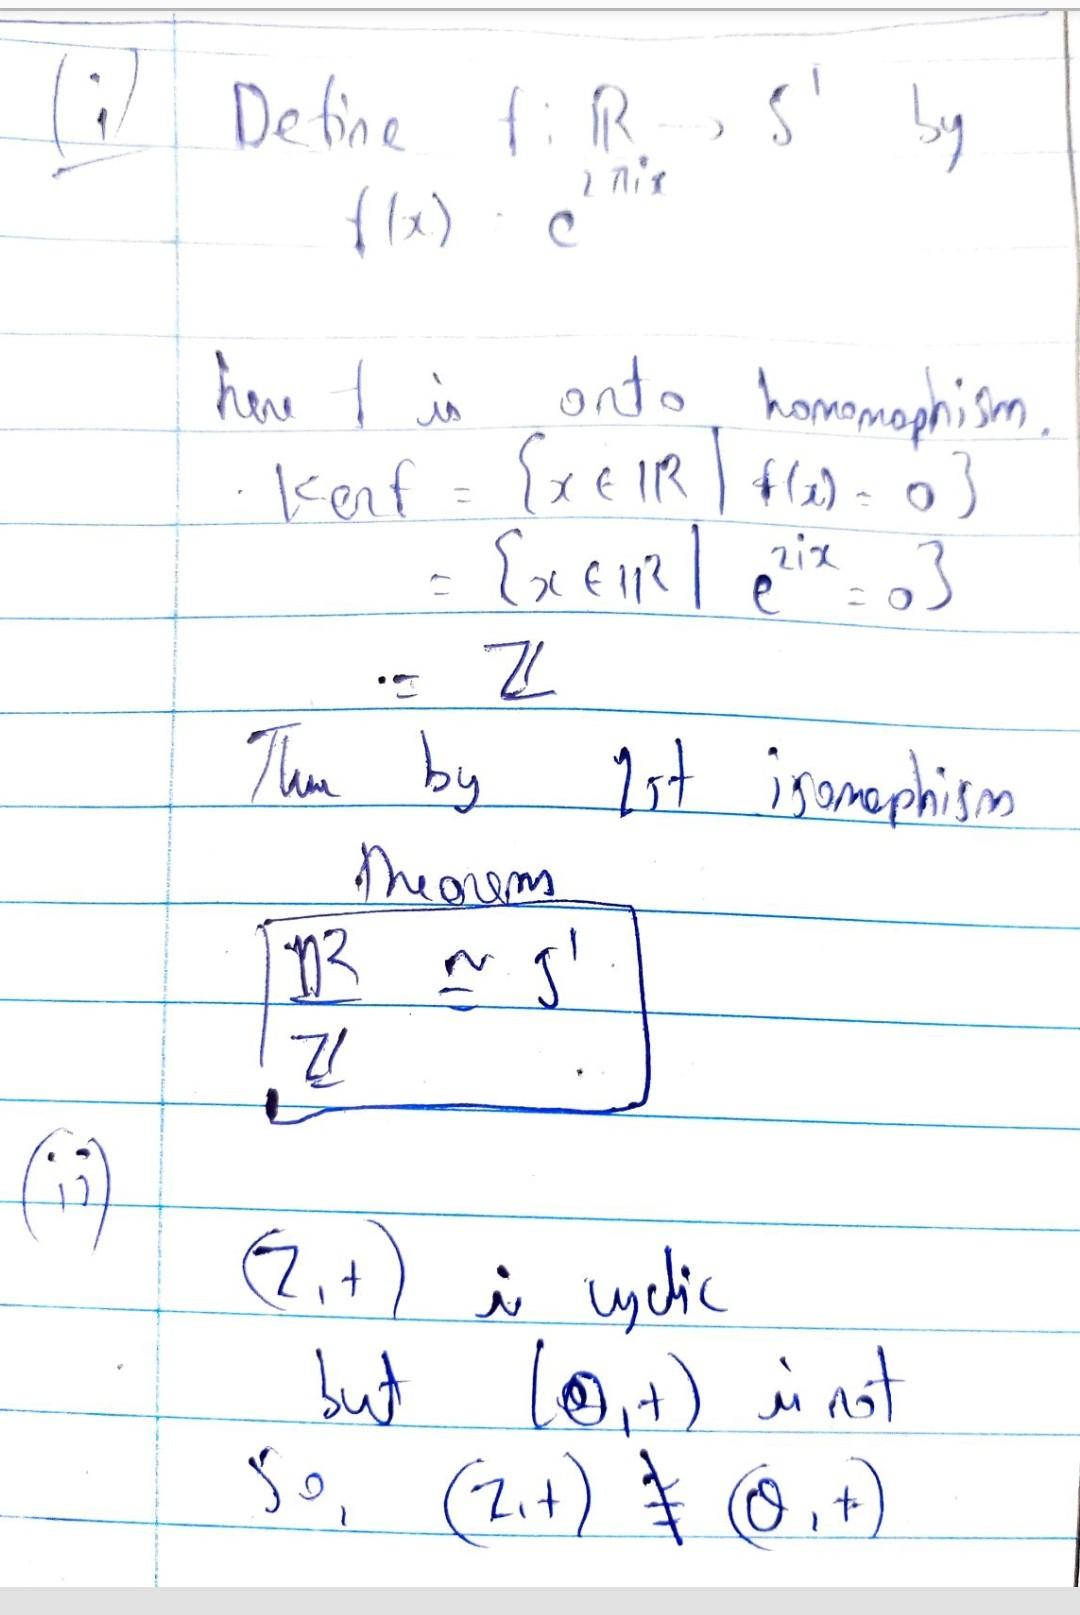 (i) Define f: ℝ → S¹ by
f(x) = e^{2πix}
here f is onto homomophism.
Kerf = {x ∈ ℝ | f(x) = 0}
= {x ∈ ℝ | e^{2ix} = 0}
= ℤ
Then by 1st isomophism
Theorems
ℝ ≃ S¹
ℤ
(ii)
(Z,+) is cyclic
but (Q,+) is not
So, (Z,+) ≇ (Q,+)